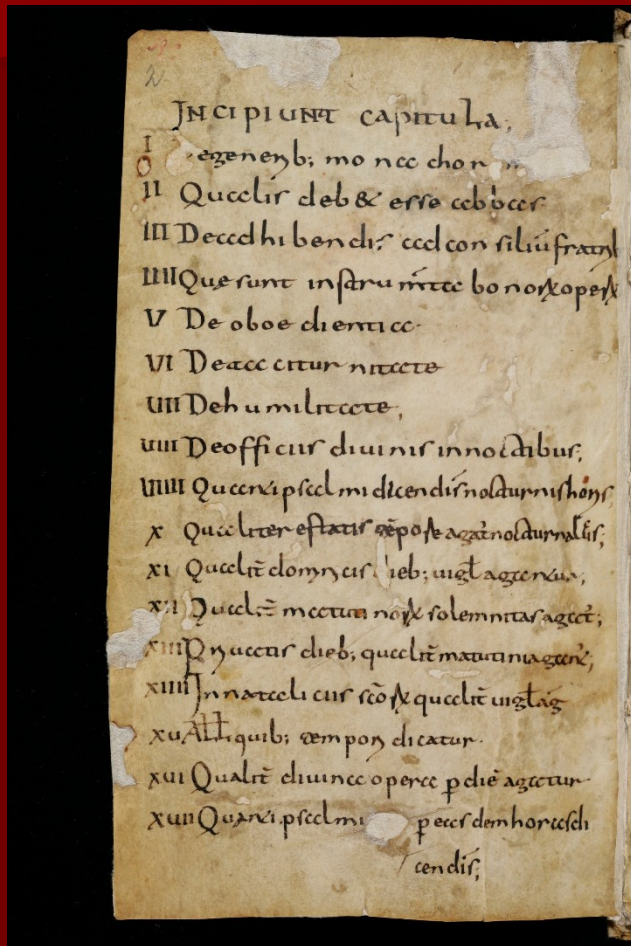 2
INCIPIUNT CAPITULA;
I egenerib; monachor
II Qualis deb& esse abbas
III De adhibendis ad consiliū fratrū
IIII Quę sunt instrumta bonorū operū
V De oboedientia
VI De taciturnitate
VII De humilitate;
VIII De officiis divinis in noctibus;
VIIII Quanti psalmi dicendi s̄ nocturnis horis;
X Qualiter estatis tēpore agat̄ nocturna
XI Qualit̄ domnicis dieb; uigł agantur;
XII Qualit̄ matutinoꝝ solemnitas agat̄;
XIII Priuatis dieb; qualit̄ matutini agant̄;
XIIII In nataliciis scōꝝ qualit̄ uigł ag
XV Ałł quib; tempor dicatur
XVI Qualit̄ diuina opera p̱ diē agatur
XVII Quanti psalmi p̱ easdem horas di
cendi s̄;